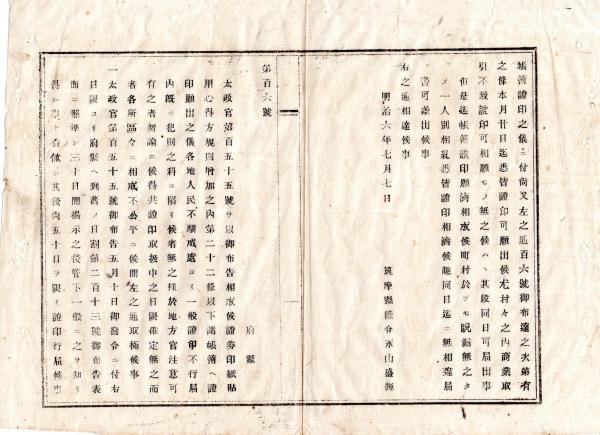 帳簿證印之儀ニ付尚又左之通百六號御布達之次第有
之候条本月廿日迄悉皆證印可願出候尤村々之内商業取
引不致證印可相願モノ無之候ハヽ其段同日可届出事
但是迄帳簿證印願濟相成候町村於テモ脱漏無之タ
メ一人別相糺悉皆證印相濟候趣同日迄ニ無相違届
書可差出候事
右之通相達候事
明治六年七月七日
筑摩縣權令永山盛輝
第百六號
府縣
太政官第百五十五號ヲ以御布告相成候證券印紙貼
用心得方規則增加之内第二十二條以下諸帳簿ヘ證
印願出之儀各地人民不馴或處ヨリ一般證印不行届
内既ニ犯則之科ニ陷リ候者無之樣於地方官注意可
有之者勿論ニ候得共證印取扱中之日限確定無之而
者各所區々ニ相成不公平ニ候間左之通取極候事
一太政官第百五十五號御布告五月十日御發令ニ付右
日限ヨリ府縣ヘ到着ノ日割第二百十三號御布告表
面ニ照準シ三十日間揭示之後管下一般ニ之ヲ知リ
得ルト看做シ其後尚五十日ヲ限リ證印行届候事